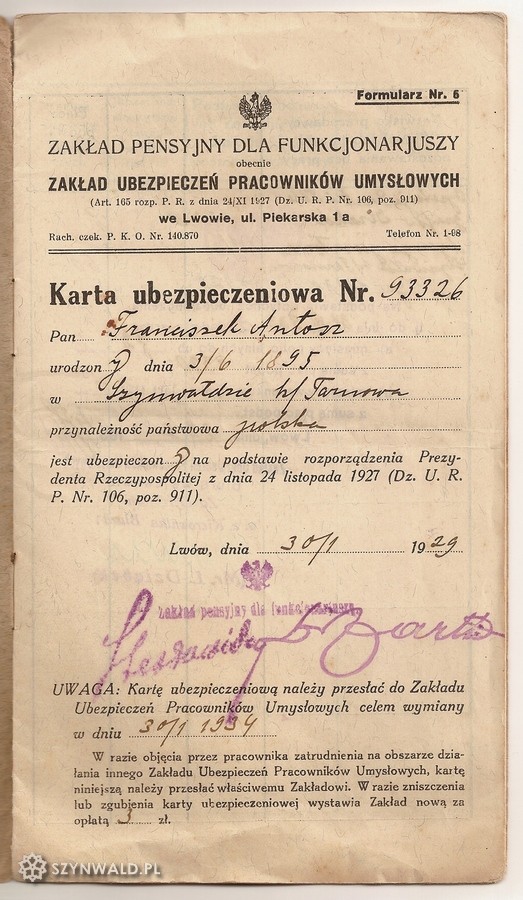 Formularz Nr. 6
ZAKŁAD PENSYJNY DLA FUNKCJONARJUSZY
obecnie
ZAKŁAD UBEZPIECZEŃ PRACOWNIKÓW UMYSŁOWYCH
(Art. 165 rozp. P. R. z dnia 24/XI 1927 (Dz. U. R. P. Nr. 106, poz. 911)
we Lwowie, ul. Piekarska 1a
Rach. czek. P. K. O. Nr. 140.870 Telefon Nr. 1-98
Karta ubezpieczeniowa Nr. 93326
Pan Franciszek Antosz
urodzony dnia 3/6 1895
w Szynwałdzie k/ Tarnowa
przynależność państwowa polska
jest ubezpieczony na podstawie rozporządzenia Prezy-
denta Rzeczypospolitej z dnia 24 listopada 1927 (Dz. U. R.
P. Nr. 106, poz. 911).
Lwów, dnia 30/1 1929
Zakład pensyjny dla funkcjonarjuszy
UWAGA: Kartę ubezpieczeniową należy przesłać do Zakładu
Ubezpieczeń Pracowników Umysłowych celem wymiany
w dniu 30/1 1934
W razie objęcia przez pracownika zatrudnienia na obszarze dzia-
łania innego Zakładu Ubezpieczeń Pracowników Umysłowych, kartę
niniejszą należy przesłać właściwemu Zakładowi. W razie zniszczenia
lub zgubienia karty ubezpieczeniowej wystawia Zakład nową za
opłatą 3 zł.
SZYNWALD.PL